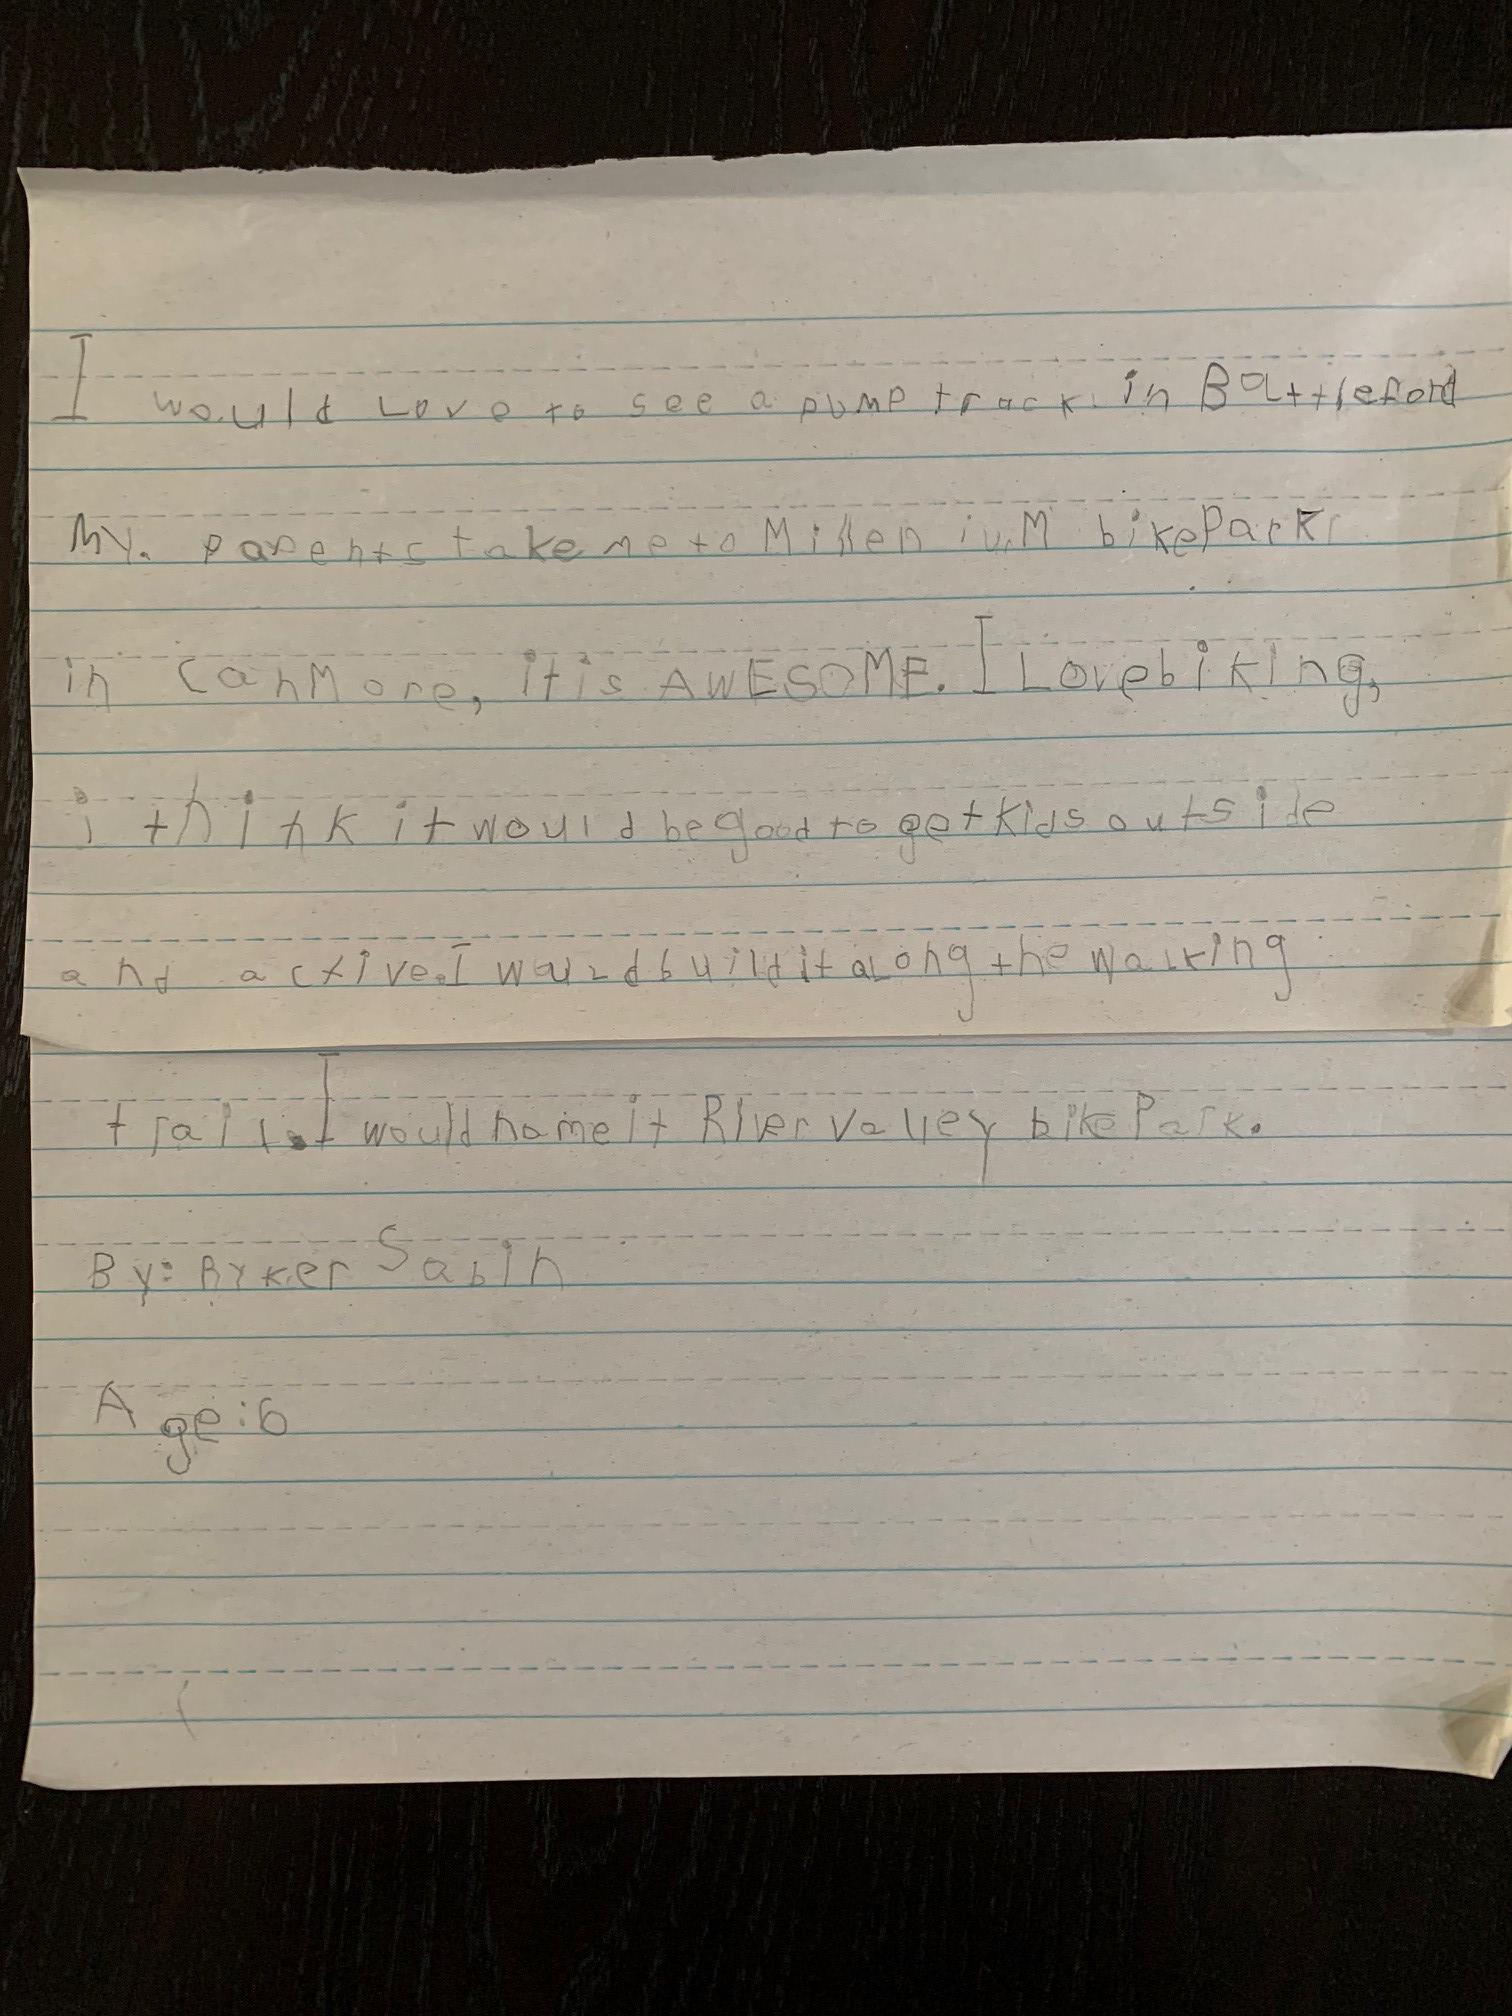 I would Love to see a pump track in Battleford
My. parents take me to Millenium bike Park
in CanMore, it is AWESOME. I Love biking,
i think it would be good to get kids outside
and active. I would build it aLong the walking
trail. I would name it River valley bike Park.
By: Ryker Sabin
Age: 6